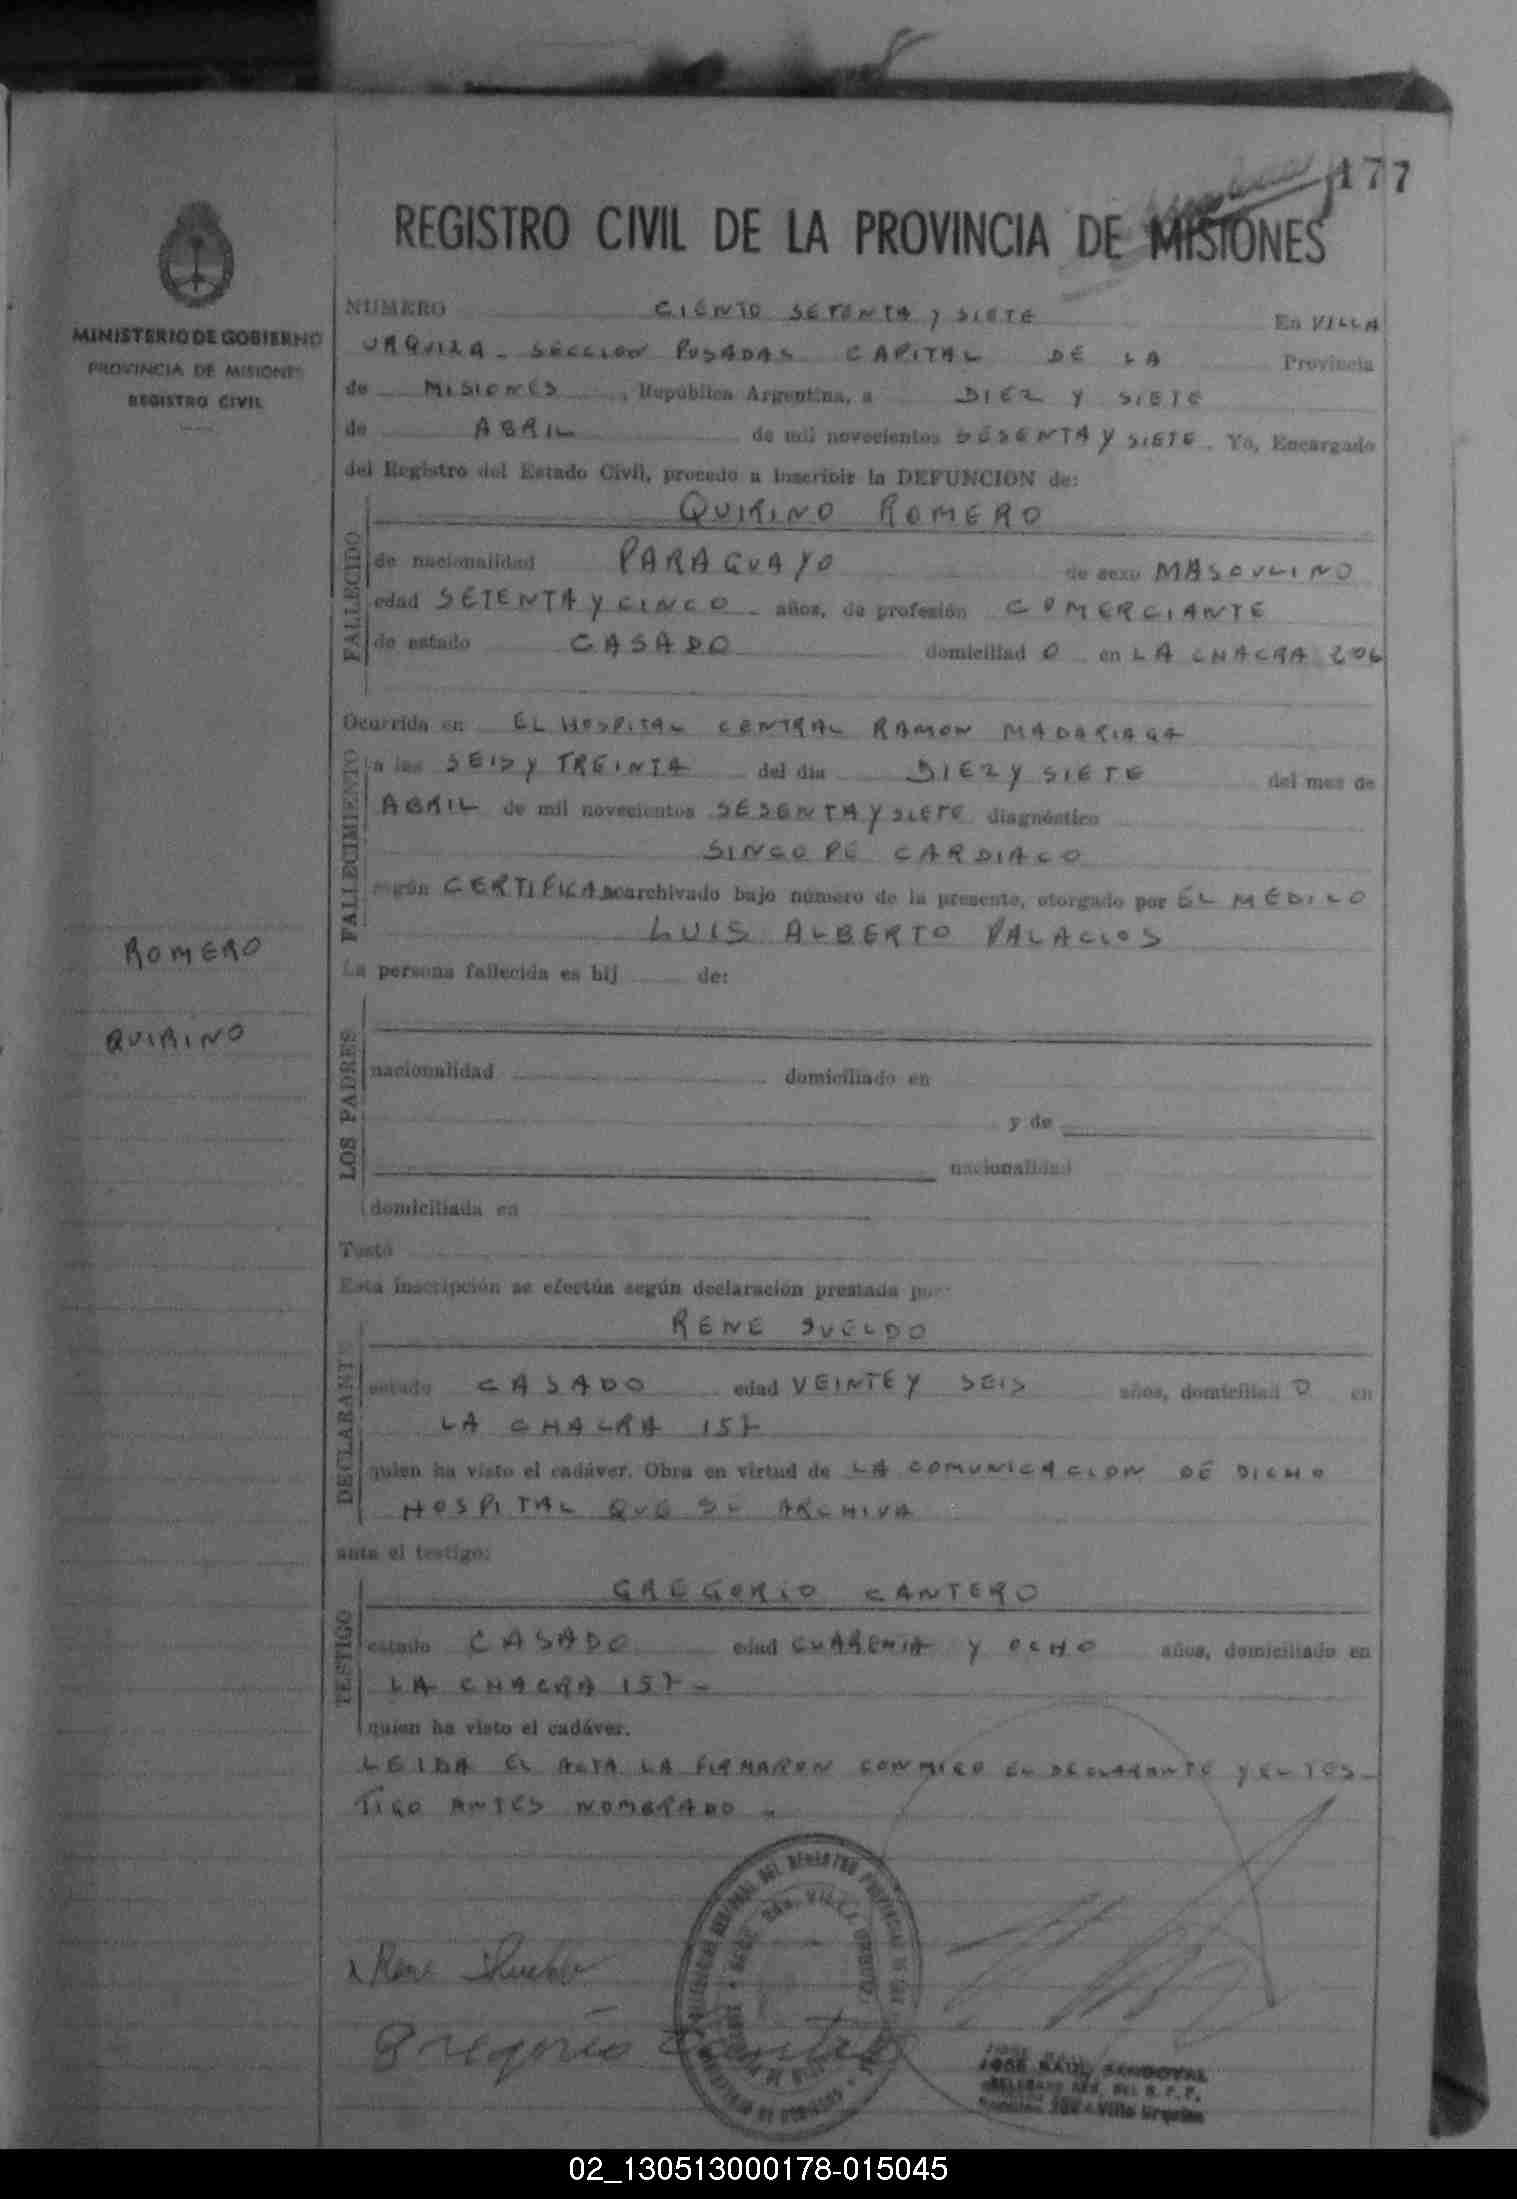 177
REGISTRO CIVIL DE LA PROVINCIA DE MISIONES
MINISTERIO DE GOBIERNO
PROVINCIA DE MISIONES
REGISTRO CIVIL
NUMERO CIENTO SETENTA y SIETE En VILLA
URQUIZA - SECCION POSADAS CAPITAL DE LA Provincia
de MISIONES, República Argentina, a DIEZ Y SIETE
de ABRIL de mil novecientos SESENTA Y SIETE. Yo, Encargado
del Registro del Estado Civil, procedo a inscribir la DEFUNCION de:
QUIRINO ROMERO
FALLECIDO
de nacionalidad PARAGUAYO de sexo MASCULINO
edad SETENTA Y CINCO - años, de profesión COMERCIANTE
de estado CASADO domiciliad O en LA CHACRA 206
Ocurrida en EL HOSPITAL CENTRAL RAMON MADARIAGA
FALLECIMIENTO
a las SEIS Y TREINTA del día DIEZ Y SIETE del mes de
ABRIL de mil novecientos SESENTA Y SIETE diagnóstico
SINCOPE CARDIACO
según CERTIFICADO archivado bajo número de la presente, otorgado por EL MEDICO
LUIS ALBERTO PALACIOS
ROMERO
QUIRINO
La persona fallecida es hij de:
LOS PADRES
nacionalidad domiciliado en
y de
nacionalidad
domiciliada en
Testó
Esta inscripción se efectúa según declaración prestada por:
RENE SUELDO
DECLARANTE
estado CASADO edad VEINTE Y SEIS años, domiciliad O en
LA CHACRA 157
quien ha visto el cadáver. Obra en virtud de LA COMUNICACION DE DICHO
HOSPITAL QUE SE ARCHIVA
ante el testigo:
GREGORIO CANTERO
TESTIGO
estado CASADO edad CUARENTA Y OCHO años, domiciliado en
LA CHACRA 157 -
quien ha visto el cadáver.
LEIDA EL ACTA LA FIRMARON CONMIGO EL DECLARANTE Y EL TES-
TIGO ANTES NOMBRADO -
Rene Sueldo
Gregorio Cantero
JOSE RAUL SANDOVAL
Villa Urquiza
02_130513000178-015045